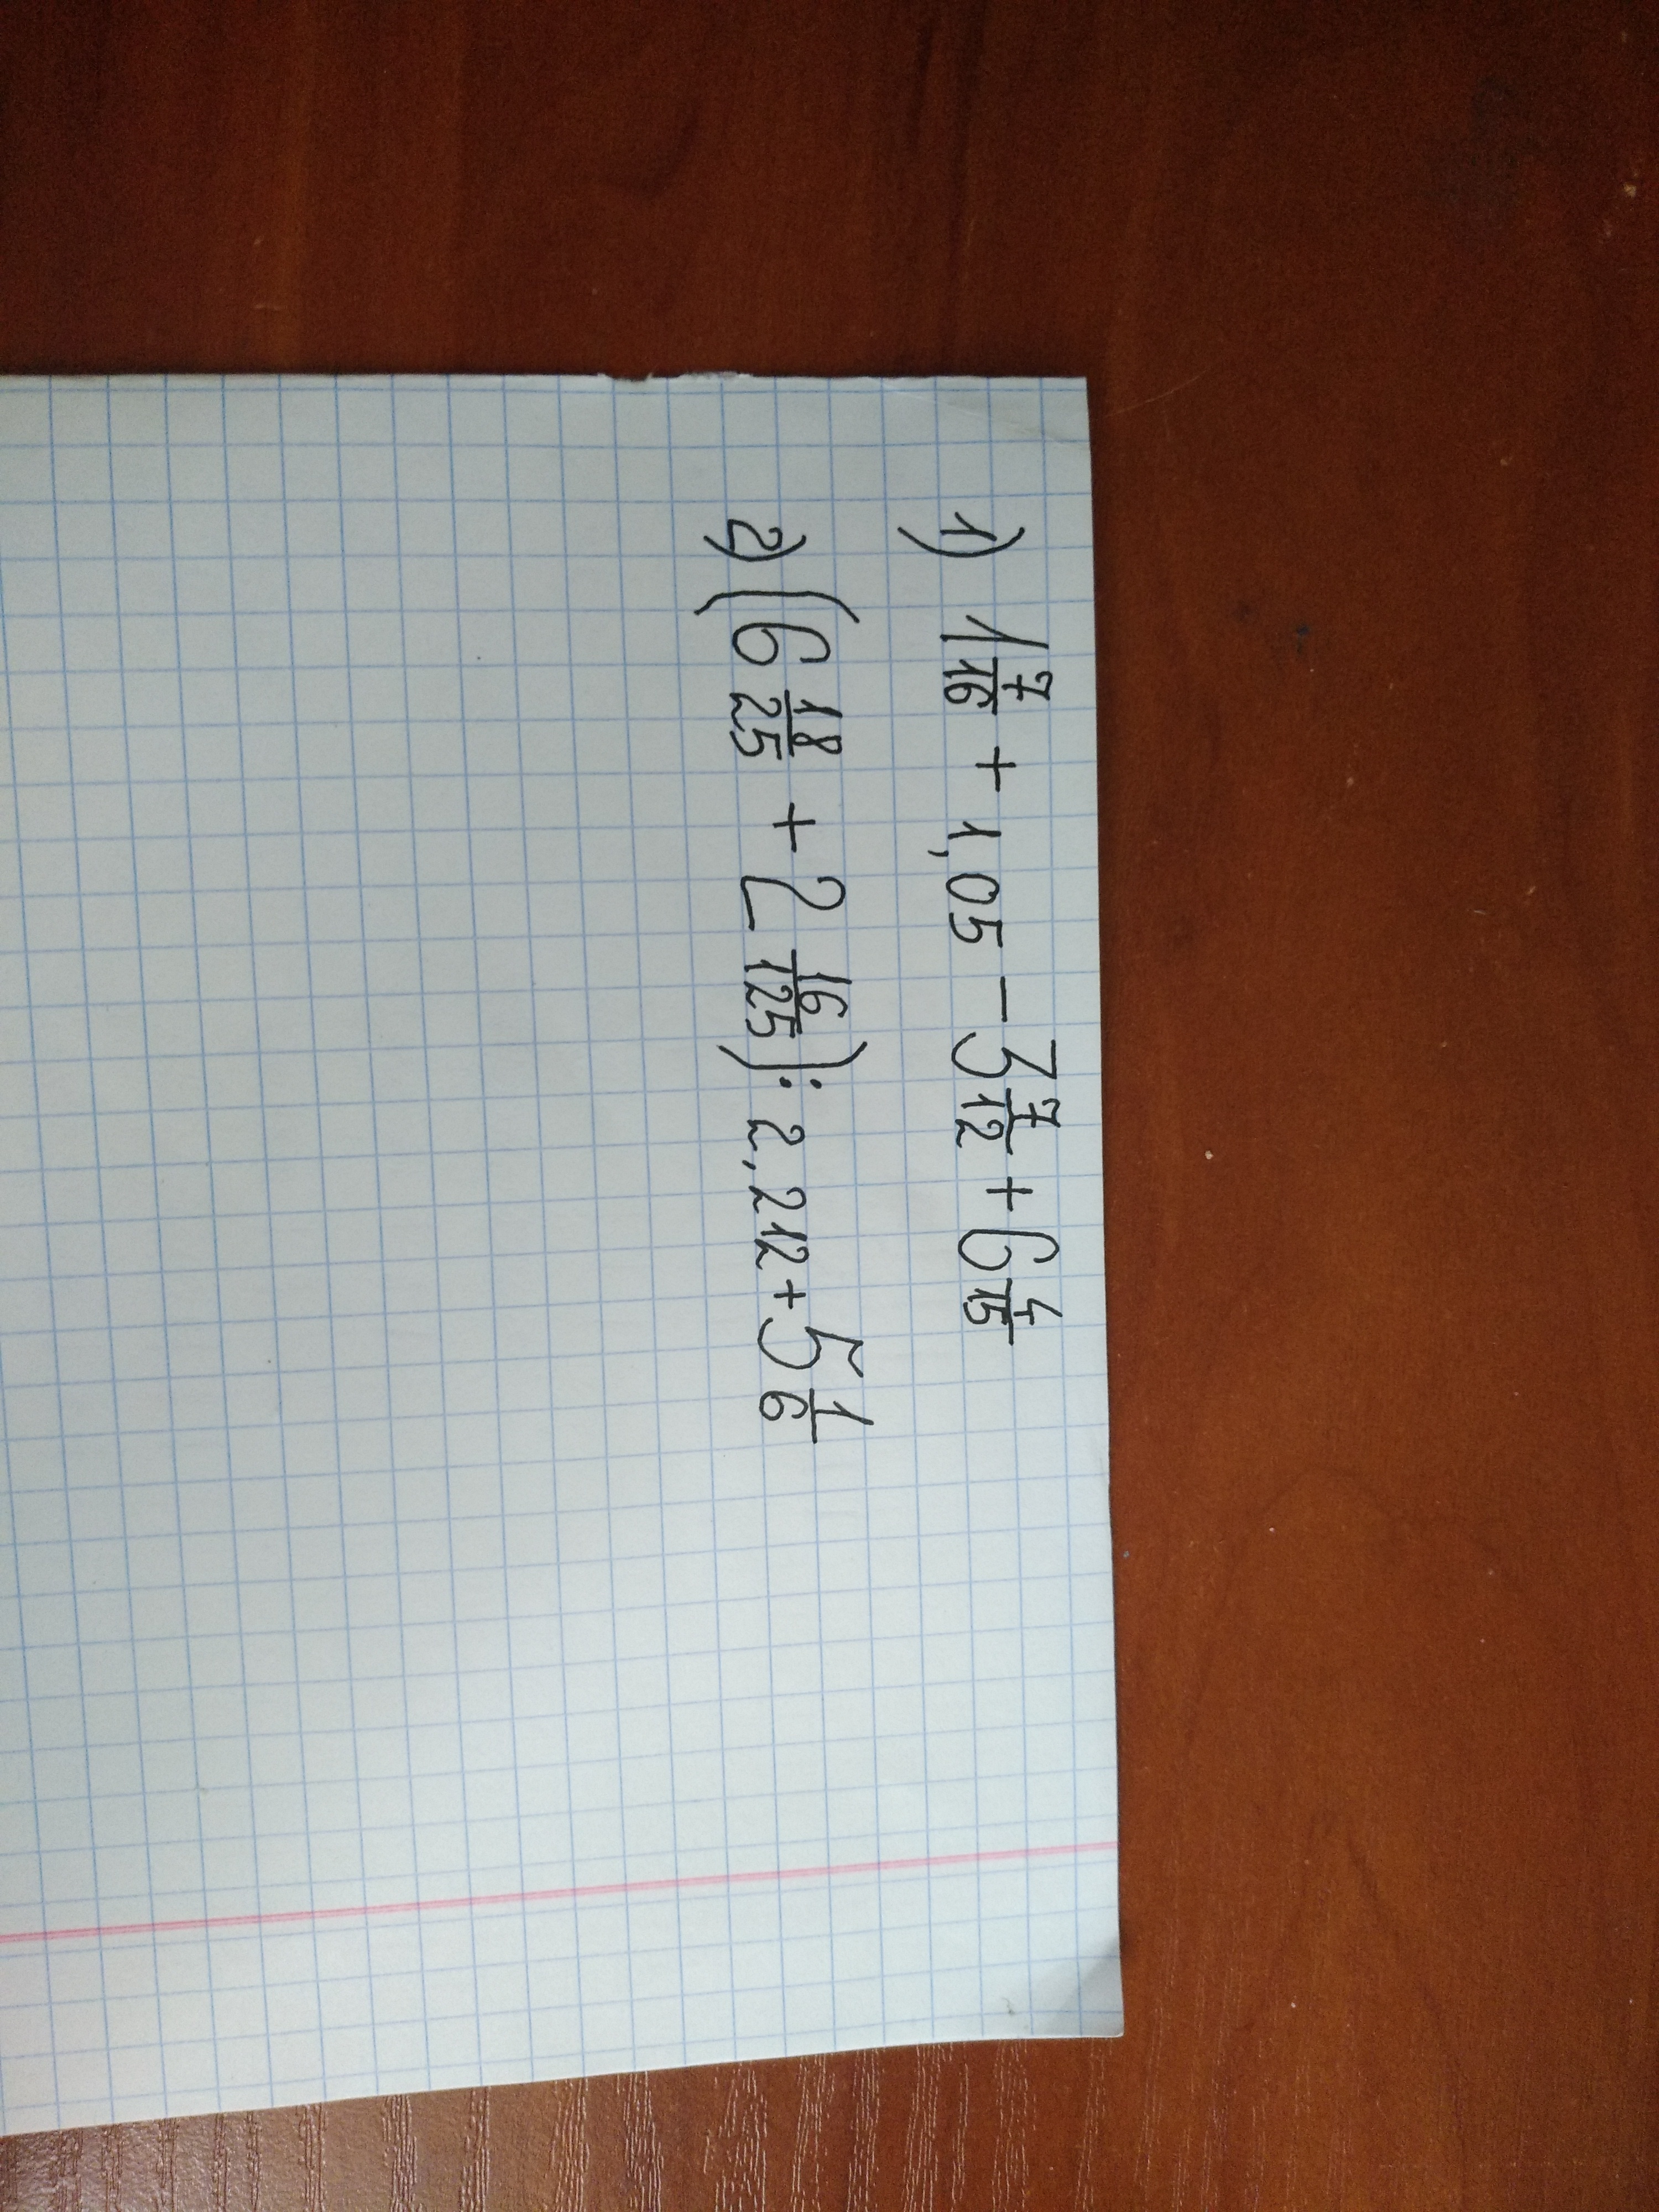 1) 1 7/16 + 1,05 - 3 7/12 + 6 4/15
2) (6 18/25 + 2 16/125) : 2,212 + 5 1/6